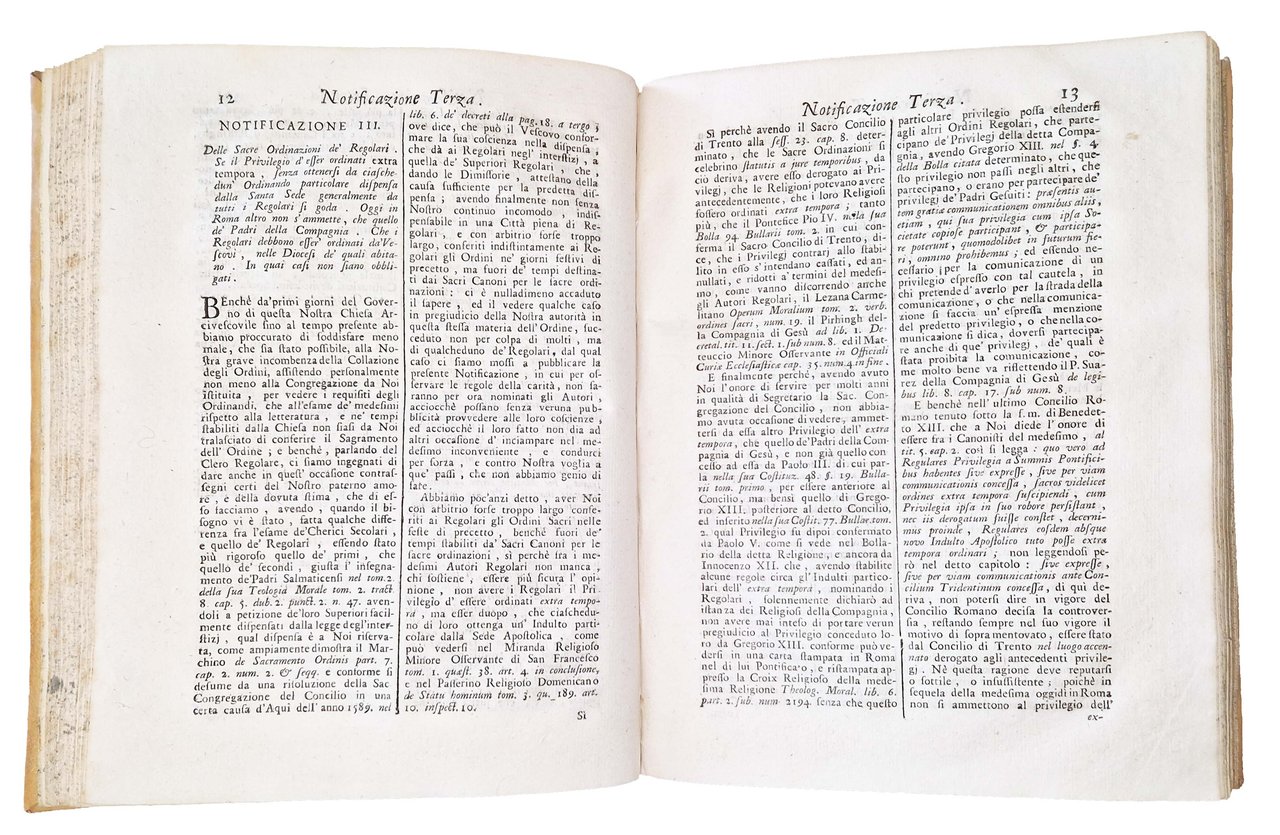 12
Notificazione Terza .
NOTIFICAZIONE III.
Delle Sacre Ordinazioni de' Regolari .
Se il Privilegio d'eſſer ordinati extra
tempora , ſenza ottenerſi da ciaſche-
dun' Ordinando particolare diſpenſa
dalla Santa Sede generalmente da
tutti i Regolari ſi goda . Oggi in
Roma altro non s'ammette, che quello
de' Padri della Compagnia . Che i
Regolari debbono eſſer' ordinati da'Ve-
ſcovi , nelle Dioceſi de' quali abita-
no . In quai caſi non ſiano obbli-
gati .
BEnchè da'primi giorni del Gover-
no di queſta Noſtra Chieſa Ar-
civeſcovile ſino al tempo preſente ab-
biamo procurato di ſoddisfare meno
male, che ſia ſtato poſſibile, alla No-
ſtra grave incombenza della Collazione
degli Ordini, aſſiſtendo perſonalmente
non meno alla Congregazione da Noi
iſtituita , per vedere i requiſiti degli
Ordinandi, che all'eſame de' medeſimi
riſpetto alla letteratura , e ne' tempi
ſtabiliti dalla Chieſa non ſiaſi da Noi
tralaſciato di conferire il Sagramento
dell' Ordine ; e benchè , parlando del
Clero Regolare, ci ſiamo ingegnati di
dare anche in queſt' occaſione contraſ-
ſegni certi del Noſtro paterno amo-
re , e della dovuta ſtima , che di eſ-
ſo facciamo , avendo , quando il bi-
ſogno vi è ſtato , fatta qualche diffe-
renza fra l'eſame de'Cherici Secolari ,
e quello de' Regolari , eſſendo ſtato
più rigoroſo quello de' primi , che
quello de' ſecondi , giuſta l' inſegna-
mento de'Padri Salmaticenſi nel tom.2.
della ſua Teologia Morale tom. 2. tract.
8. cap. 5. dub. 2. punct. 2. n. 47. aven-
doli a petizione de'loro Superiori facil-
mente diſpenſati dalla legge degl'inter-
ſtizj , qual diſpenſa è a Noi riſerva-
ta, come ampiamente dimoſtra il Mar-
chino de Sacramento Ordinis part. 7.
cap. 2. num. 2. & ſeqq. e conforme ſi
deſume da una riſoluzione della Sac
Congregazione del Concilio in una
certa cauſa d'Aqui dell' anno 1589. nel
lib. 6. de' decreti alla pag. 18. a tergo ,
ove dice, che può il Veſcovo confor-
mare la ſua coſcienza nella diſpenſa ,
che dà ai Regolari negl' interſtizj , a
quella de' Superiori Regolari , che ,
dando le Dimiſſorie , atteſtano della
cauſa ſufficiente per la predetta diſ-
penſa ; avendo finalmente non ſenza
Noſtro continuo incomodo , indiſ-
penſabile in una Città piena di Re-
golari , e con arbitrio forſe troppo
largo, conferiti indiſtintamente ai Re-
golari gli Ordini ne' giorni feſtivi di
precetto , ma fuori de' tempi deſtina-
ti dai Sacri Canoni per le ſacre ordi-
nazioni : ci è nulladimeno accaduto
il ſapere , ed il vedere qualche caſo
in pregiudicio della Noſtra autorità in
queſta ſteſſa materia dell'Ordine, ſuc-
ceduto non per colpa di molti , ma
di qualcheduno de'Regolari, dal qual
caſo ci ſiamo moſſi a pubblicare la
preſente Notificazione , in cui per oſ-
ſervare le regole della carità, non ſa-
ranno per ora nominati gli Autori ,
acciocchè poſſano ſenza veruna pub-
blicità provvedere alle loro coſcienze ,
ed acciocchè il loro fatto non dia ad
altri occaſione d' inciampare nel me-
deſimo inconveniente , e condurci
per forza , e contro Noſtra voglia a
que' paſſi , che non abbiamo genio di
fare.
Abbiamo poc'anzi detto , aver Noi
con arbitrio forſe troppo largo confe-
riti ai Regolari gli Ordini Sacri nelle
feſte di precetto , benchè fuori de'
tempi ſtabiliti da' Sacri Canoni per le
ſacre ordinazioni , sì perchè fra i me-
deſimi Autori Regolari non manca ,
chi ſoſtiene , eſſere più ſicura l' opi-
nione , non avere i Regolari il Pri-
vilegio d' eſſere ordinati extra tempo-
ra , ma eſſer duopo , che ciaſchedu-
no di loro ottenga un' Indulto parti-
colare dalla Sede Apoſtolica , come
può vederſi nel Miranda Religioſo
Minore Oſſervante di San Franceſco
tom. 1. quæſt. 38. art. 4. in concluſione,
e nel Paſſerino Religioſo Domenicano
de Statu hominum tom. 3. qu. 189. art.
10. inſpect. 10.
Sì
Notificazione Terza .
13
Sì perchè avendo il Sacro Concilio
di Trento alla ſeſſ. 23. cap. 8. deter-
minato , che le Sacre Ordinazioni ſi
celebrino ſtatutis a jure temporibus , da
ciò deriva, avere eſſo derogato ai Pri-
vilegj , che le Religioni potevano avere
antecedentemente, che i loro Religioſi
foſſero ordinati extra tempora ; tanto
più , che il Pontefice Pio IV. nella ſua
Bolla 94. Bullarii tom. 2. in cui con-
ferma il Sacro Concilio di Trento, di-
ce, che i Privilegj contrarj allo ſtabi-
lito in eſſo s'intendano caſſati, ed an-
nullati, e ridotti a'termini del medeſi-
mo , come vanno diſcorrendo anche
gli Autori Regolari, il Lezana Carme-
litano Operum Moralium tom. 2. verb.
ordines ſacri, num. 19. il Pirhingh del-
la Compagnia di Gesù ad lib. 1. De-
cretal. tit. 11. ſect. 1. ſub num. 8. ed il Mat-
teuccio Minore Oſſervante in Officiali
Curiæ Eccleſiaſticæ cap. 35. num. 4. in fine .
E finalmente perchè, avendo avuto
Noi l'onore di ſervire per molti anni
in qualità di Segretario la Sac. Con-
gregazione del Concilio , non abbia-
mo avuta occaſione di vedere, ammet-
terſi da eſſa altro Privilegio dell' extra
tempora, che quello de'Padri della Com-
pagnia di Gesù, e non già quello con-
ceſſo ad eſſa da Paolo III. di cui par-
la nella ſua Coſtituz. 48. §. 19. Bulla-
rii tom. primo , per eſſere anteriore al
Concilio, ma bensì quello di Grego-
rio XIII. poſteriore al detto Concilio,
ed inſerito nella ſua Coſtit. 77. Bullar. tom.
2. qual Privilegio fu dipoi confermato
da Paolo V. come ſi vede nel Bolla-
rio della detta Religione, e ancora da
Innocenzo XII. che , avendo ſtabilite
alcune regole circa gl'Indulti partico-
lari dell' extra tempora , nominando i
Regolari , ſolennemente dichiarò ad
iſtanza dei Religioſi della Compagnia,
non avere mai inteſo di portare verun
pregiudicio al Privilegio conceduto lo-
ro da Gregorio XIII. conforme può ve-
derſi in una carta ſtampata in Roma
nel di lui Pontificato, e riſtampata ap-
preſſo la Croix Religioſo della mede-
ſima Religione Theolog. Moral. lib. 6.
part. 2. ſub. num 2194. ſenza che queſto
particolare privilegio poſſa eſtenderſi
agli altri Ordini Regolari, che parte-
cipano de' Privilegj della detta Compa-
gnia, avendo Gregorio XIII. nel §. 4.
della Bolla citata determinato, che que-
ſto privilegio non paſſi negli altri, che
partecipano, o erano per partecipare de'
privilegj de' Padri Geſuiti: præſentis au-
tem gratiæ communicationem omnibus aliis,
etiam , qui ſua privilegia cum ipſa So-
cietate copioſe participant , & participa-
re poterunt, quomodolibet in futurum fie-
ri, omnino prohibemus ; ed eſſendo ne-
ceſſario per la comunicazione di un
privilegio eſpreſſo con tal cautela, in
chi pretende d'averlo per la ſtrada della
comunicazione, o che nella comunica-
zione ſi faccia un' eſpreſſa menzione
del predetto privilegio, o che nella co-
municazione ſi dica, doverſi partecipa-
re anche di que' privilegj , de' quali è
ſtata proibita la comunicazione , co-
me molto bene va riflettendo il P. Sua-
rez della Compagnia di Gesù de legi-
bus lib. 8. cap. 17. ſub num. 8.
E benchè nell' ultimo Concilio Ro-
mano tenuto ſotto la f. m. di Benedet-
to XIII. che a Noi diede l'onore di
eſſere fra i Canoniſti del medeſimo , al
tit. 5. cap. 2. così ſi legga : quo vero ad
Regulares Privilegia a Summis Pontifici-
bus habentes ſive expreſſe , ſive per viam
communicationis conceſſa , ſacros videlicet
ordines extra tempora ſuſcipiendi , cum
Privilegia ipſa in ſuo robore perſiſtant ,
nec iis derogatum fuiſſe conſtet , decerni-
mus proinde , Regulares eoſdem abſque
novo Indulto Apoſtolico tuto poſſe extra
tempora ordinari ; non leggendoſi pe-
rò nel detto capitolo : ſive expreſſe ,
ſive per viam communicationis ante Con-
cilium Tridentinum conceſſa , di quì de-
riva , non poterſi dire in vigore del
Concilio Romano deciſa la controver-
ſia , reſtando ſempre nel ſuo vigore il
motivo di ſopra mentovato , eſſere ſtato
dal Concilio di Trento nel luogo accen-
nato derogato agli antecedenti privile-
gj . Nè queſta ragione deve reputarſi
o ſottile , o inſuſſiſtente ; poichè in
ſequela della medeſima oggidì in Roma
non ſi ammettono al privilegio dell'
ex-